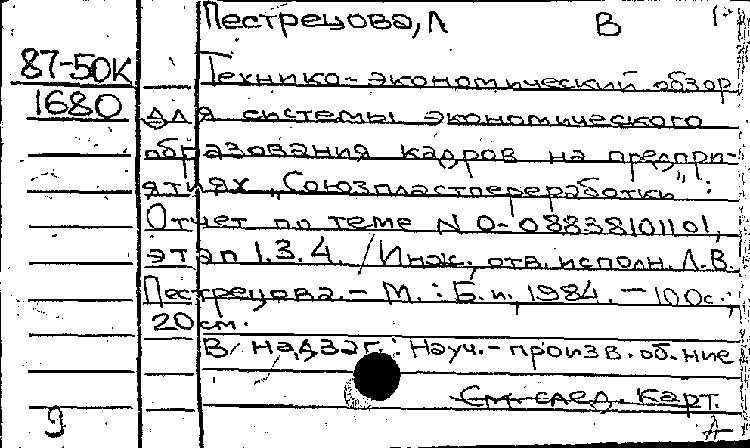 Пестрецова, Л В
87-50К Технико-экономический обзор
1680 для системы экономического
образования кадров на предпри-
ятиях „Союзпластпереработки“:
Отчет по теме N 0-0883810110!,
этап 1.3.4. / Инж. отв. исполн. Л.В.
Пестрецова. - М. : Б.и., 1984. - 100с.;
20 см.
В надзаг.: Науч.-произв. об-ние
См. след. карт.
9